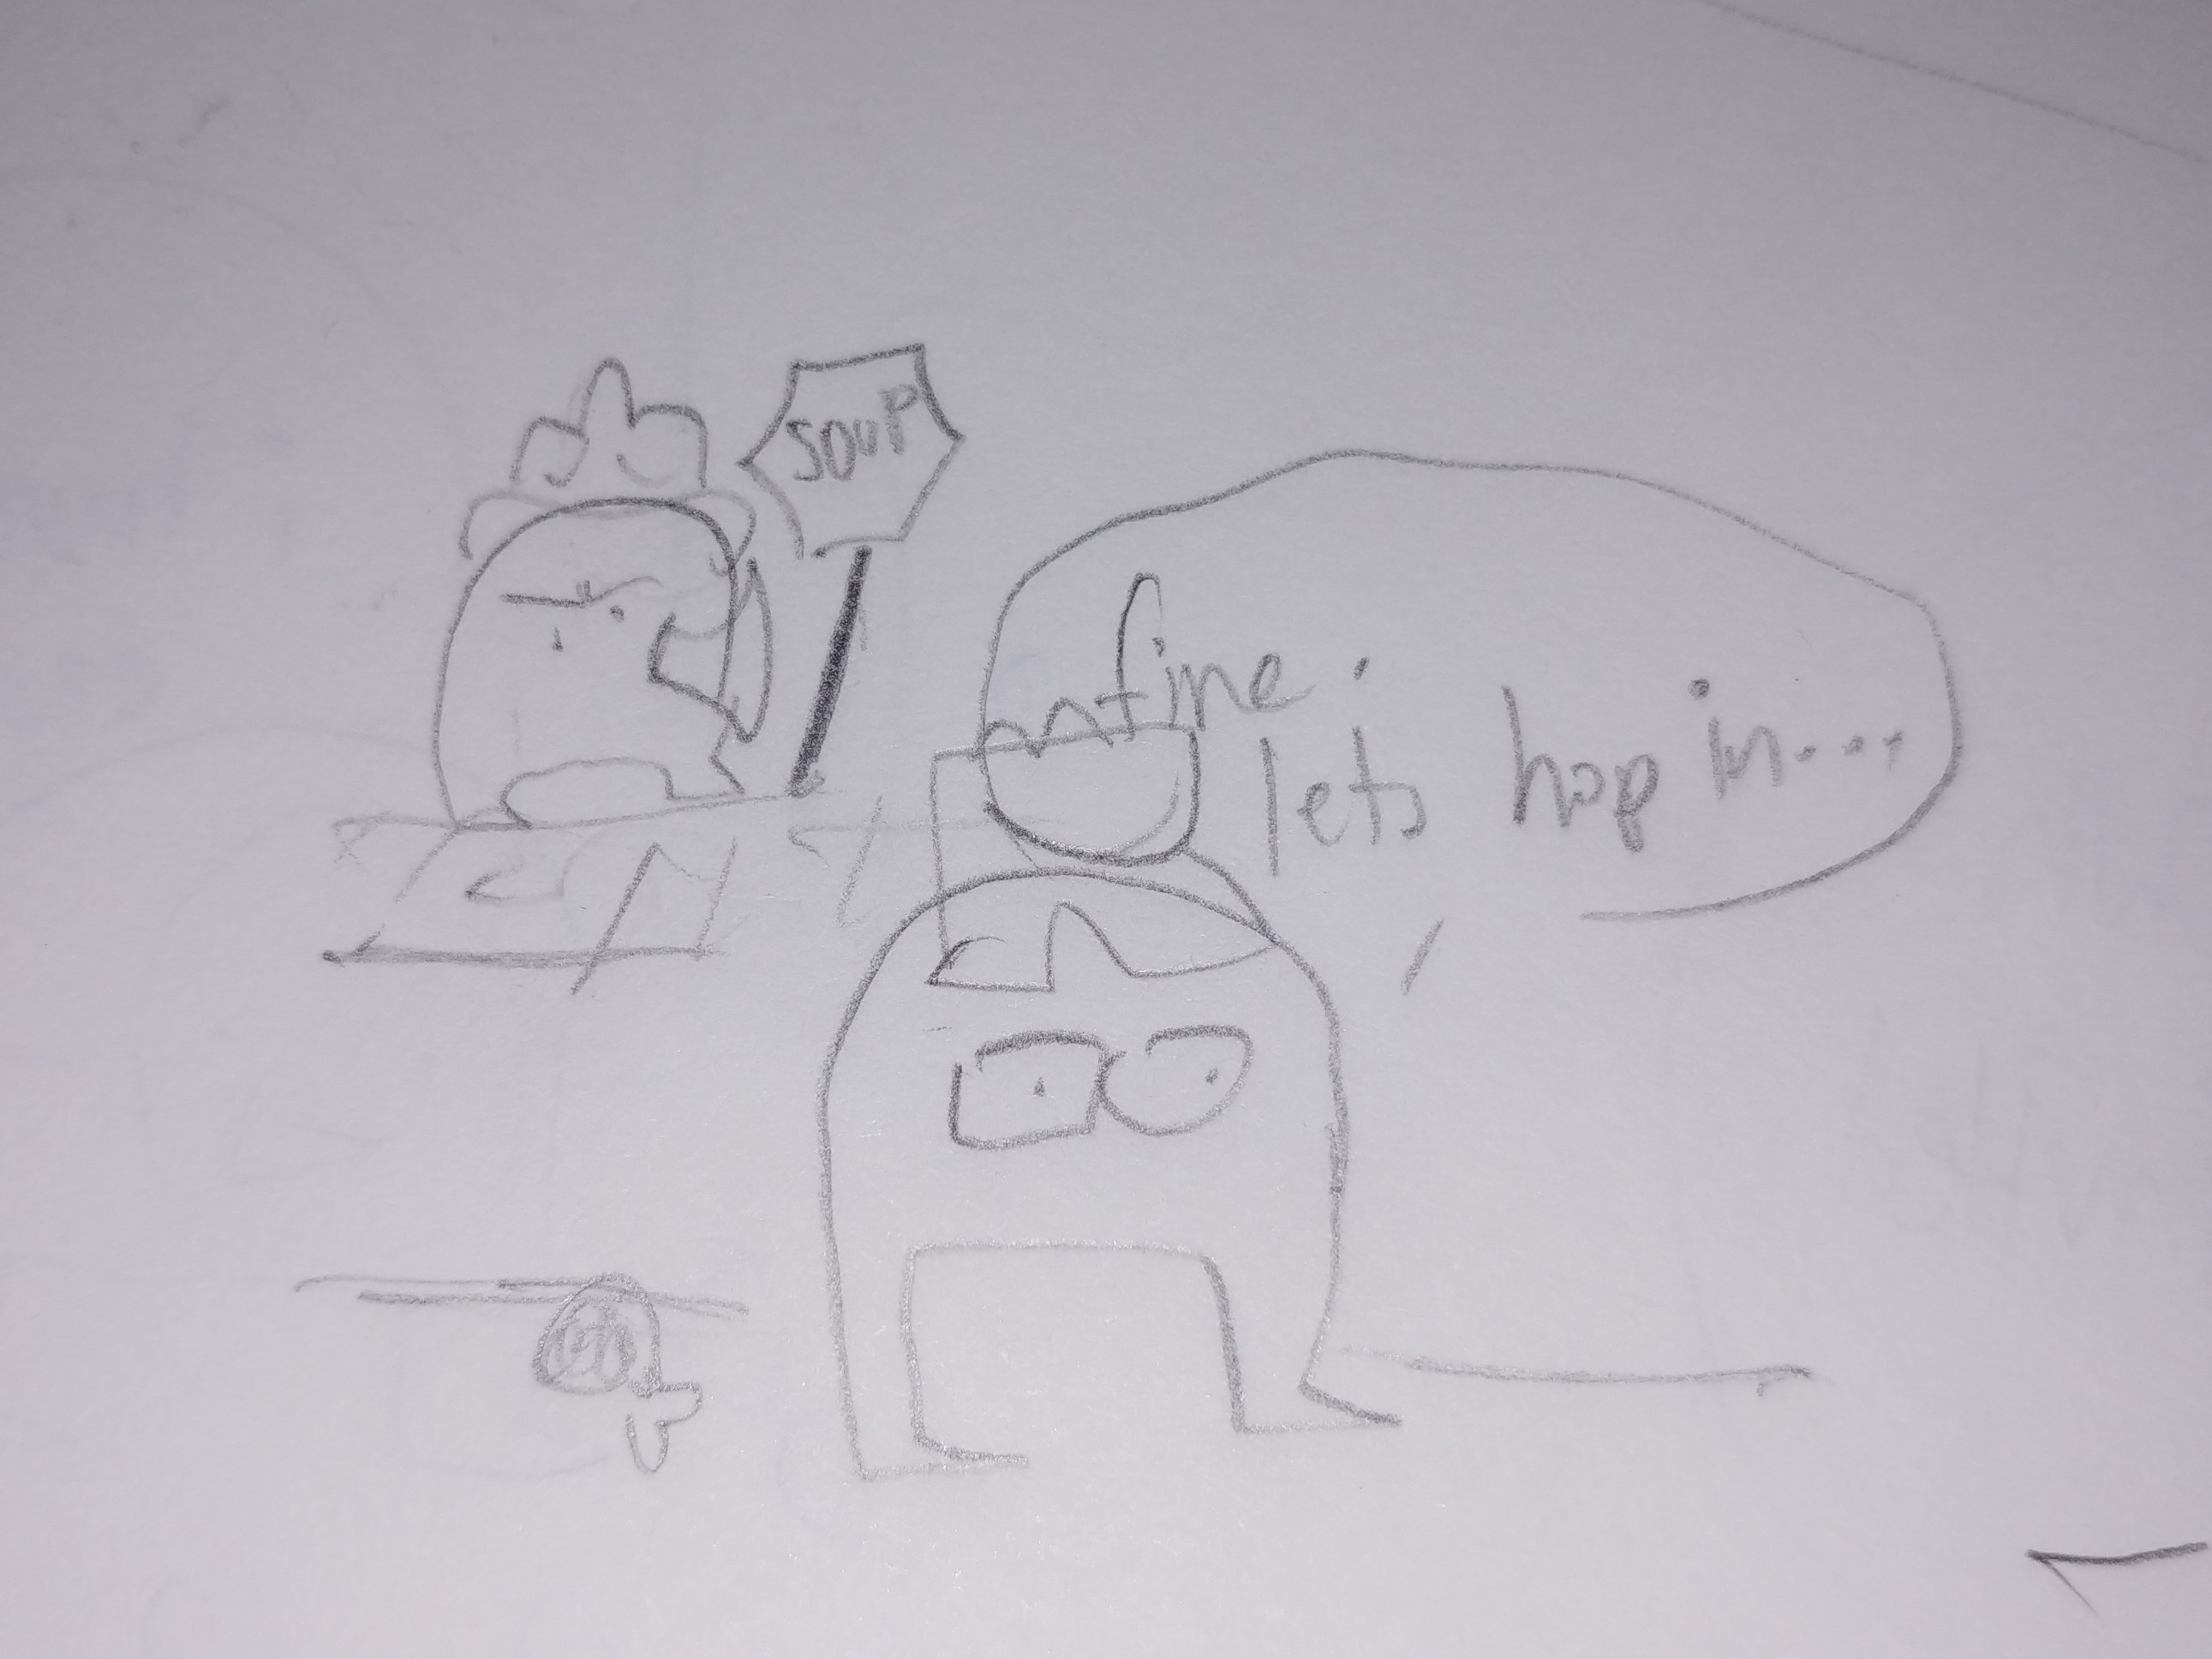 SOUP
fine.
lets hop in....